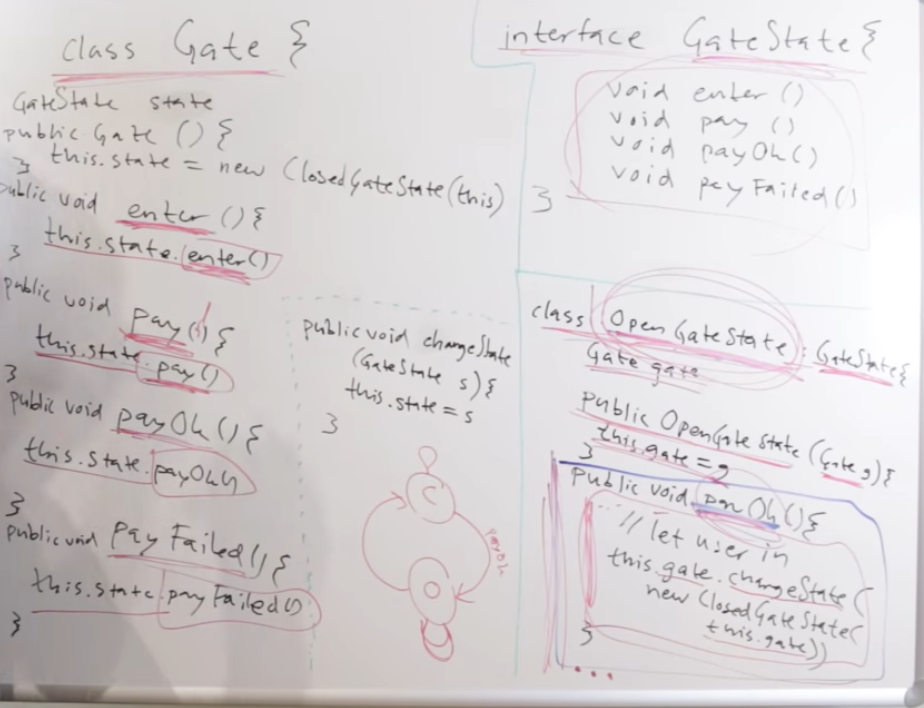 class Gate {
GateState state
public Gate () {
this.state = new ClosedGateState(this)
}
public void enter () {
this.state.enter()
}
public void pay () {
this.state.pay()
}
public void payOk () {
this.state.payOk()
}
public void payFailed () {
this.state.payFailed()
}
public void changeState
(GateState s) {
this.state = s
}
C
O
payOk
interface GateState {
void enter ()
void pay ()
void payOk ()
void payFailed ()
}
class OpenGateState : GateState {
Gate gate
public OpenGateState (Gate g) {
this.gate = g
}
public void payOk () {
// let user in
this.gate.changeState (
new ClosedGateState (
this.gate))
}
...